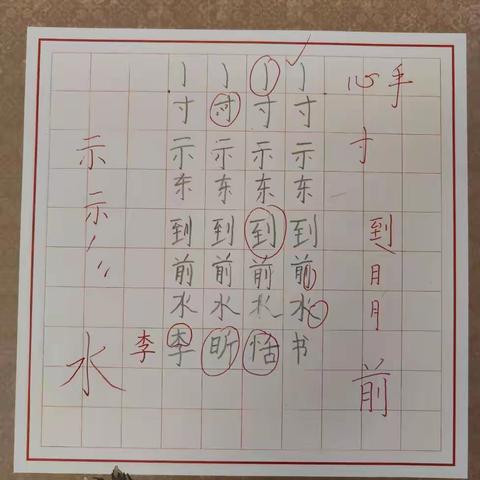 亅 亅 亅 亅
寸 寸 寸 寸
示 示 示 示
东 东 东 东
到 到 到 到
前 前 前 前
水 水 水 水
李 昕 恬 书
示
示
水
李
心手
寸
到
月月
前